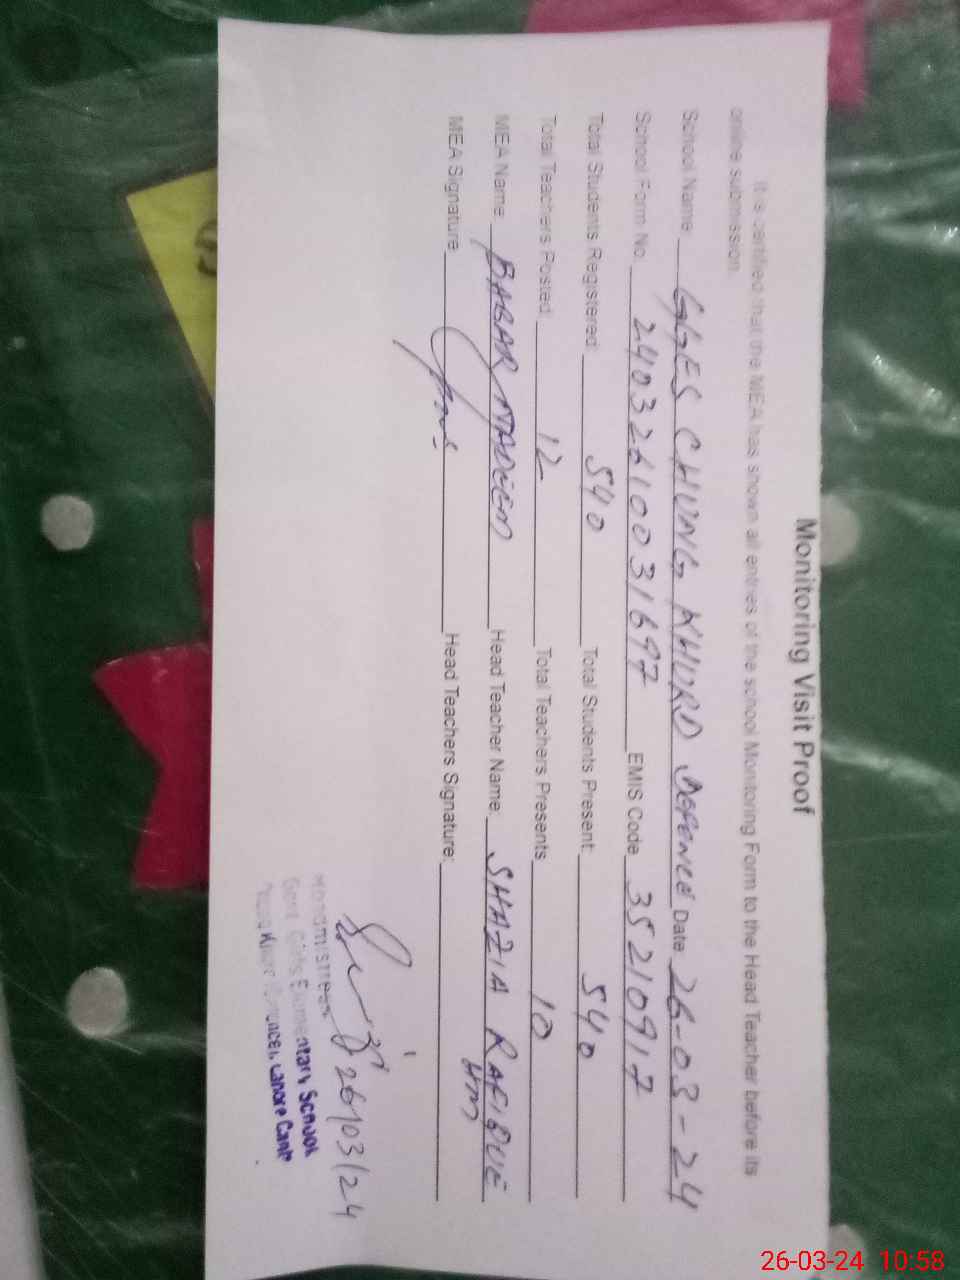 Monitoring Visit Proof
It is certified that the MEA has shown all entries of the school Monitoring Form to the Head Teacher before its
online submission.
School Name: GGES CHUNG KHURD DEFENCE Date 26-03-24
School Form No. 24032610031697 EMIS Code 35210917
Total Students Registered: 540 Total Students Present: 540
Total Teachers Posted: 12 Total Teachers Presents 10
MEA Name: BABAR NADEEM Head Teacher Name: SHAZIA RAFIQUE
HM
MEA Signature: Head Teachers Signature:
26/03/24
Headmistress
Govt. Girls Elementary School
Lahore Cantt
26-03-24 10:58